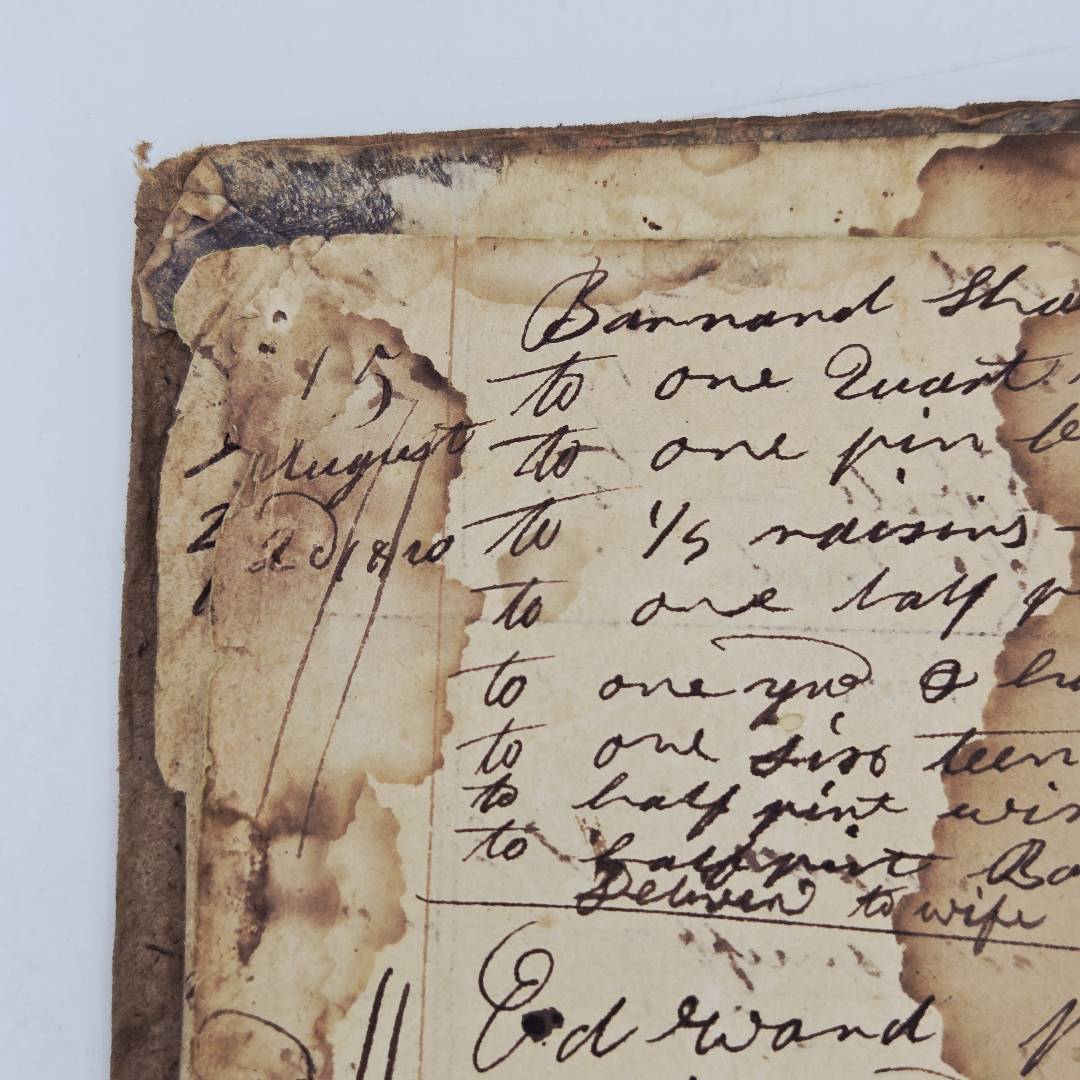 Barnard Sha
15 to one Quart
August to one pin be
2d 1810 to 1/5 raisins
to one half p
to one
to one six teen
to half pint win
to half pint Ba
Deliverd to wife
Edward